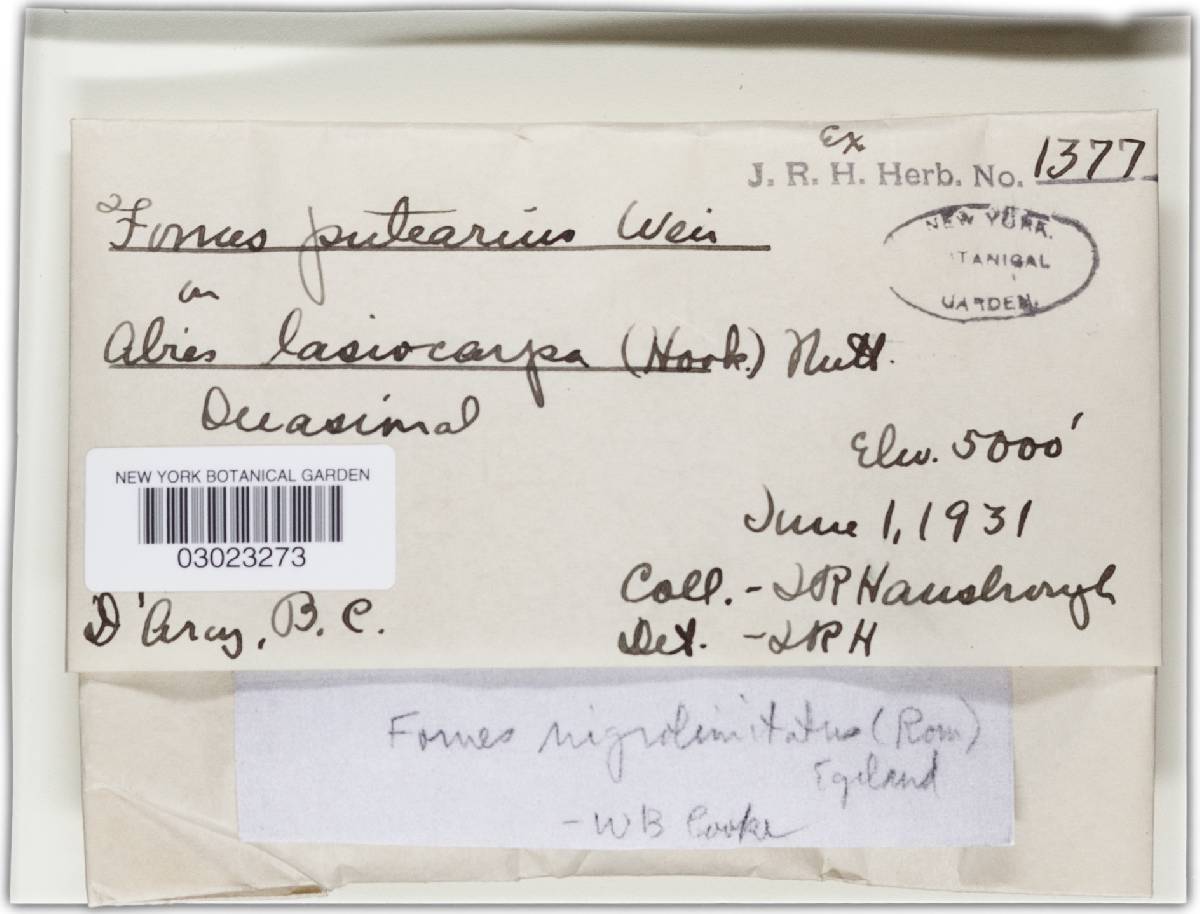 Ex
J. R. H. Herb. No. 1377
Fomes putearius Weir
NEW YORK
BOTANICAL
GARDEN.
on
Abies lasiocarpa (Hook.) Nutt.
Occasional
Elev. 5000'
NEW YORK BOTANICAL GARDEN
03023273
June 1, 1931
Coll. - JR Hansbrough
D'Arcy, B. C.
Det. - JRH
Fomes nigrolimitatus (Rom)
Egeland
- WB Cooke